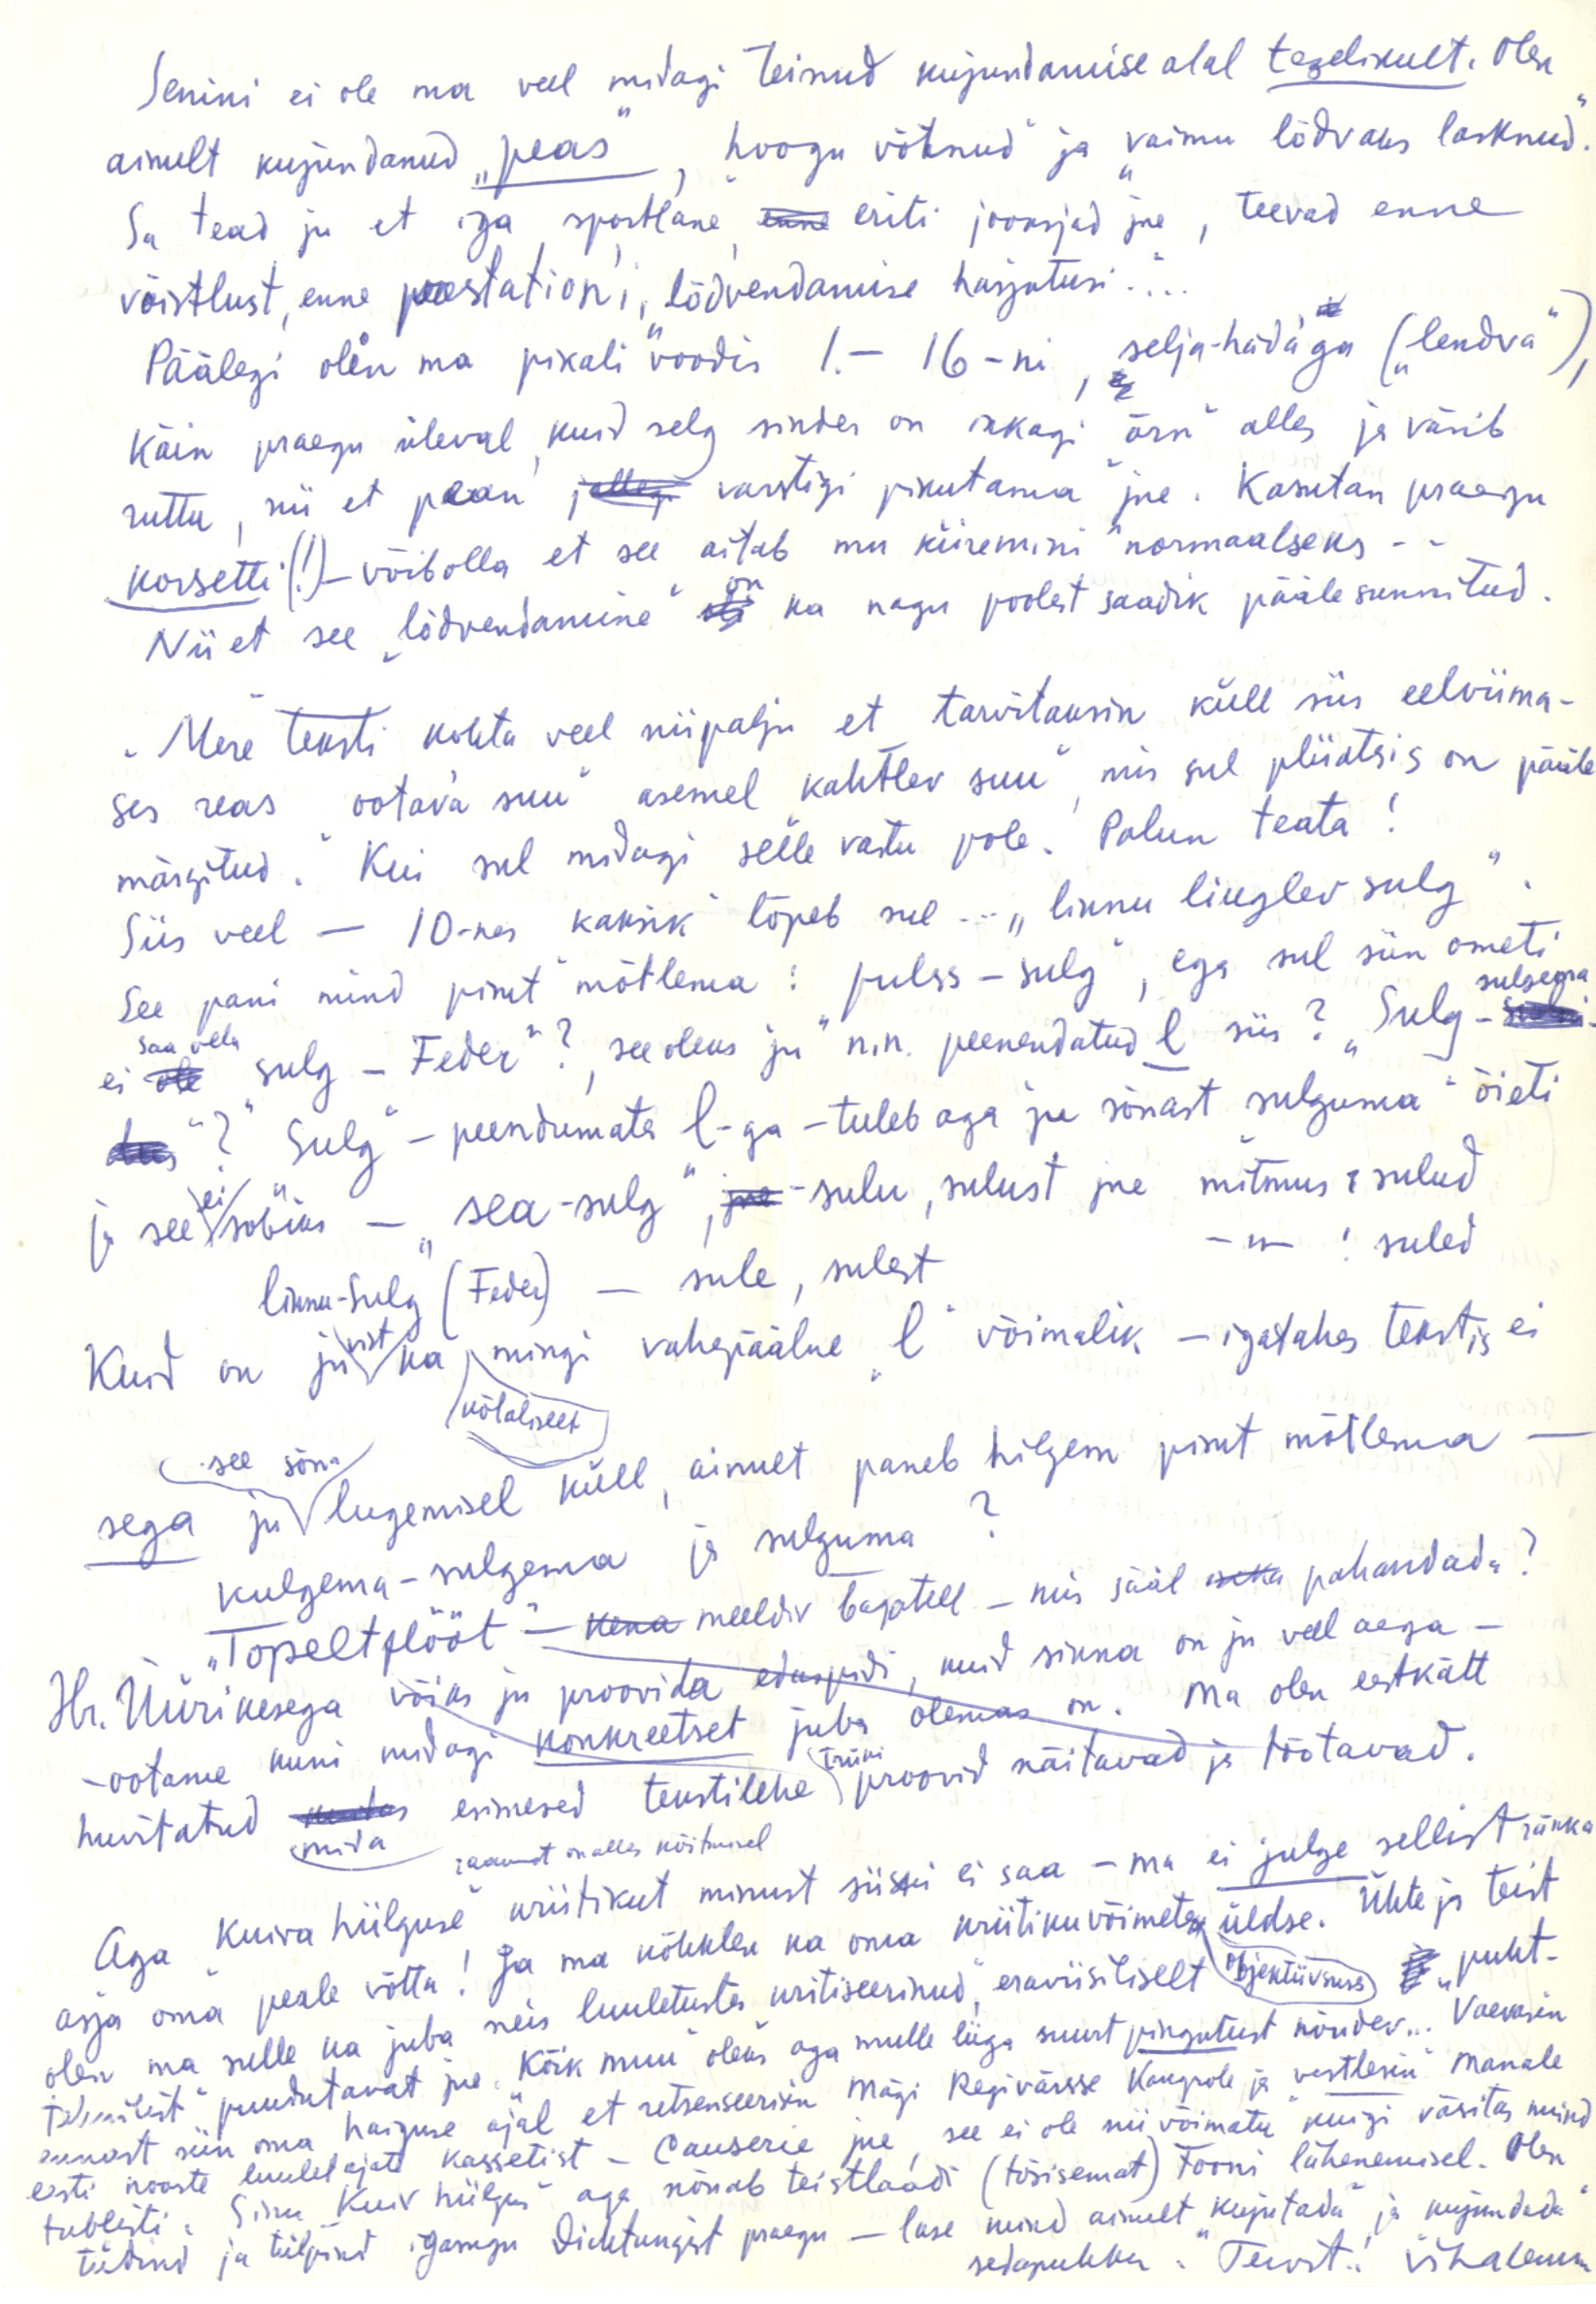 Senini ei ole ma veel midagi teinud kujundamise alal tegelikult. Olen
ainult kujundanud „peas", „hoogu võtnud" ja „vaimu lõdvaks lasknud".
Sa tead ju et iga sportlane, eriti jooksjad jne, teevad enne
võistlust, enne prestation'i, „lõdvendamise harjutusi"...
Päälegi olin ma pikali voodis 1.– 16-ni, selja-hädaga („lendva"),
Käin praegu üleval, kuid selg sindes on ikkagi „õrn" alles ja väsib
ruttu, nii et pean varstigi pikutama jne. Kasutan praegu
korsetti (!) – võibolla et see aitab mu kiiremini normaalseks - -
Nii et see „lõdvendamine" on ka nagu poolest saadik pääle sunnitud.
„Mere" teksti kohta veel niipalju et tarvitaksin küll siis eelviima-
ses reas „ootava suu" asemel „kahtlev suu", mis sul pliiatsis on pääle
märgitud. Kui sul midagi selle vastu pole. Palun teata!
Siis veel — 10-nes kaksik lõpeb sul ... „linnu liuglev sulg".
See pani mind pisut mõtlema: „pulss – sulg", ega sul siin ometi
ei saa olla „sulg – Feder"?, see oleks ju n.n. peenendatud l siis? „Sulg – sulgema
"? „Sulg" – peendumata l-ga – tuleb aga ju sõnast „sulguma" õieti
ja see ei sobiks — „sea-sulg", – sulu, sulust jne mitmus: sulud
linnu-Sulg (Feder) — sule, sulest — " — : suled
Kuid on ju vist ka mingi vahepäälne „l" võimalik – igatahes tekstis ei
kõlaliselt
see sõna
sega ju lugemisel küll, ainult paneb hiljem pisut mõtlema —
kulgema – sulgema ja sulguma?
„Topeltflööt" – meeldiv bagatell – mis sääl pahandada?
Hr. Üürikesega võiks ju proovida eduspidi, kuid sinna on ju veel aega –
– ootame kuni midagi konkreetset juba olemas on. Ma olen eestkätt
huvitatud mida esimesed tekstilehe trüki proovid näitavad ja töötavad.
raamat on alles köitmisel
Aga „Kuiva hiilguse" kriitikut minust siiski ei saa – ma ei julge sellist ränka
asja oma peale võtta! Ja ma kõhklen ka oma kriitikuvõimetes üldse. Ühte ja teist
objektiivsuses
olen ma sulle ka juba neis luuletustes kritiseerinud, eraviisiliselt „puht-
puudutavat jne. Kõik muu oleks aga mulle liiga suurt pingutust nõudev... Vaevasin
ennast siin oma haiguse ajal et retsenseerisin Mägi Regivärsse Kaugele ja vestlesin Manale
eesti noorte luuletajate kassetist – Causerie jne, see ei ole nii võimatu kuigi väsitas mind
tublisti. Sinu „Kuiv hiilgus" aga nõuab teistlaadi (tõsisemat) tooni lähenemisel. Olen
tüdind ja tülpind igasugu Dichtungist praegu — lase mind ainult „kujutada" ja „kujundada"
sedapuhku. Tervist!